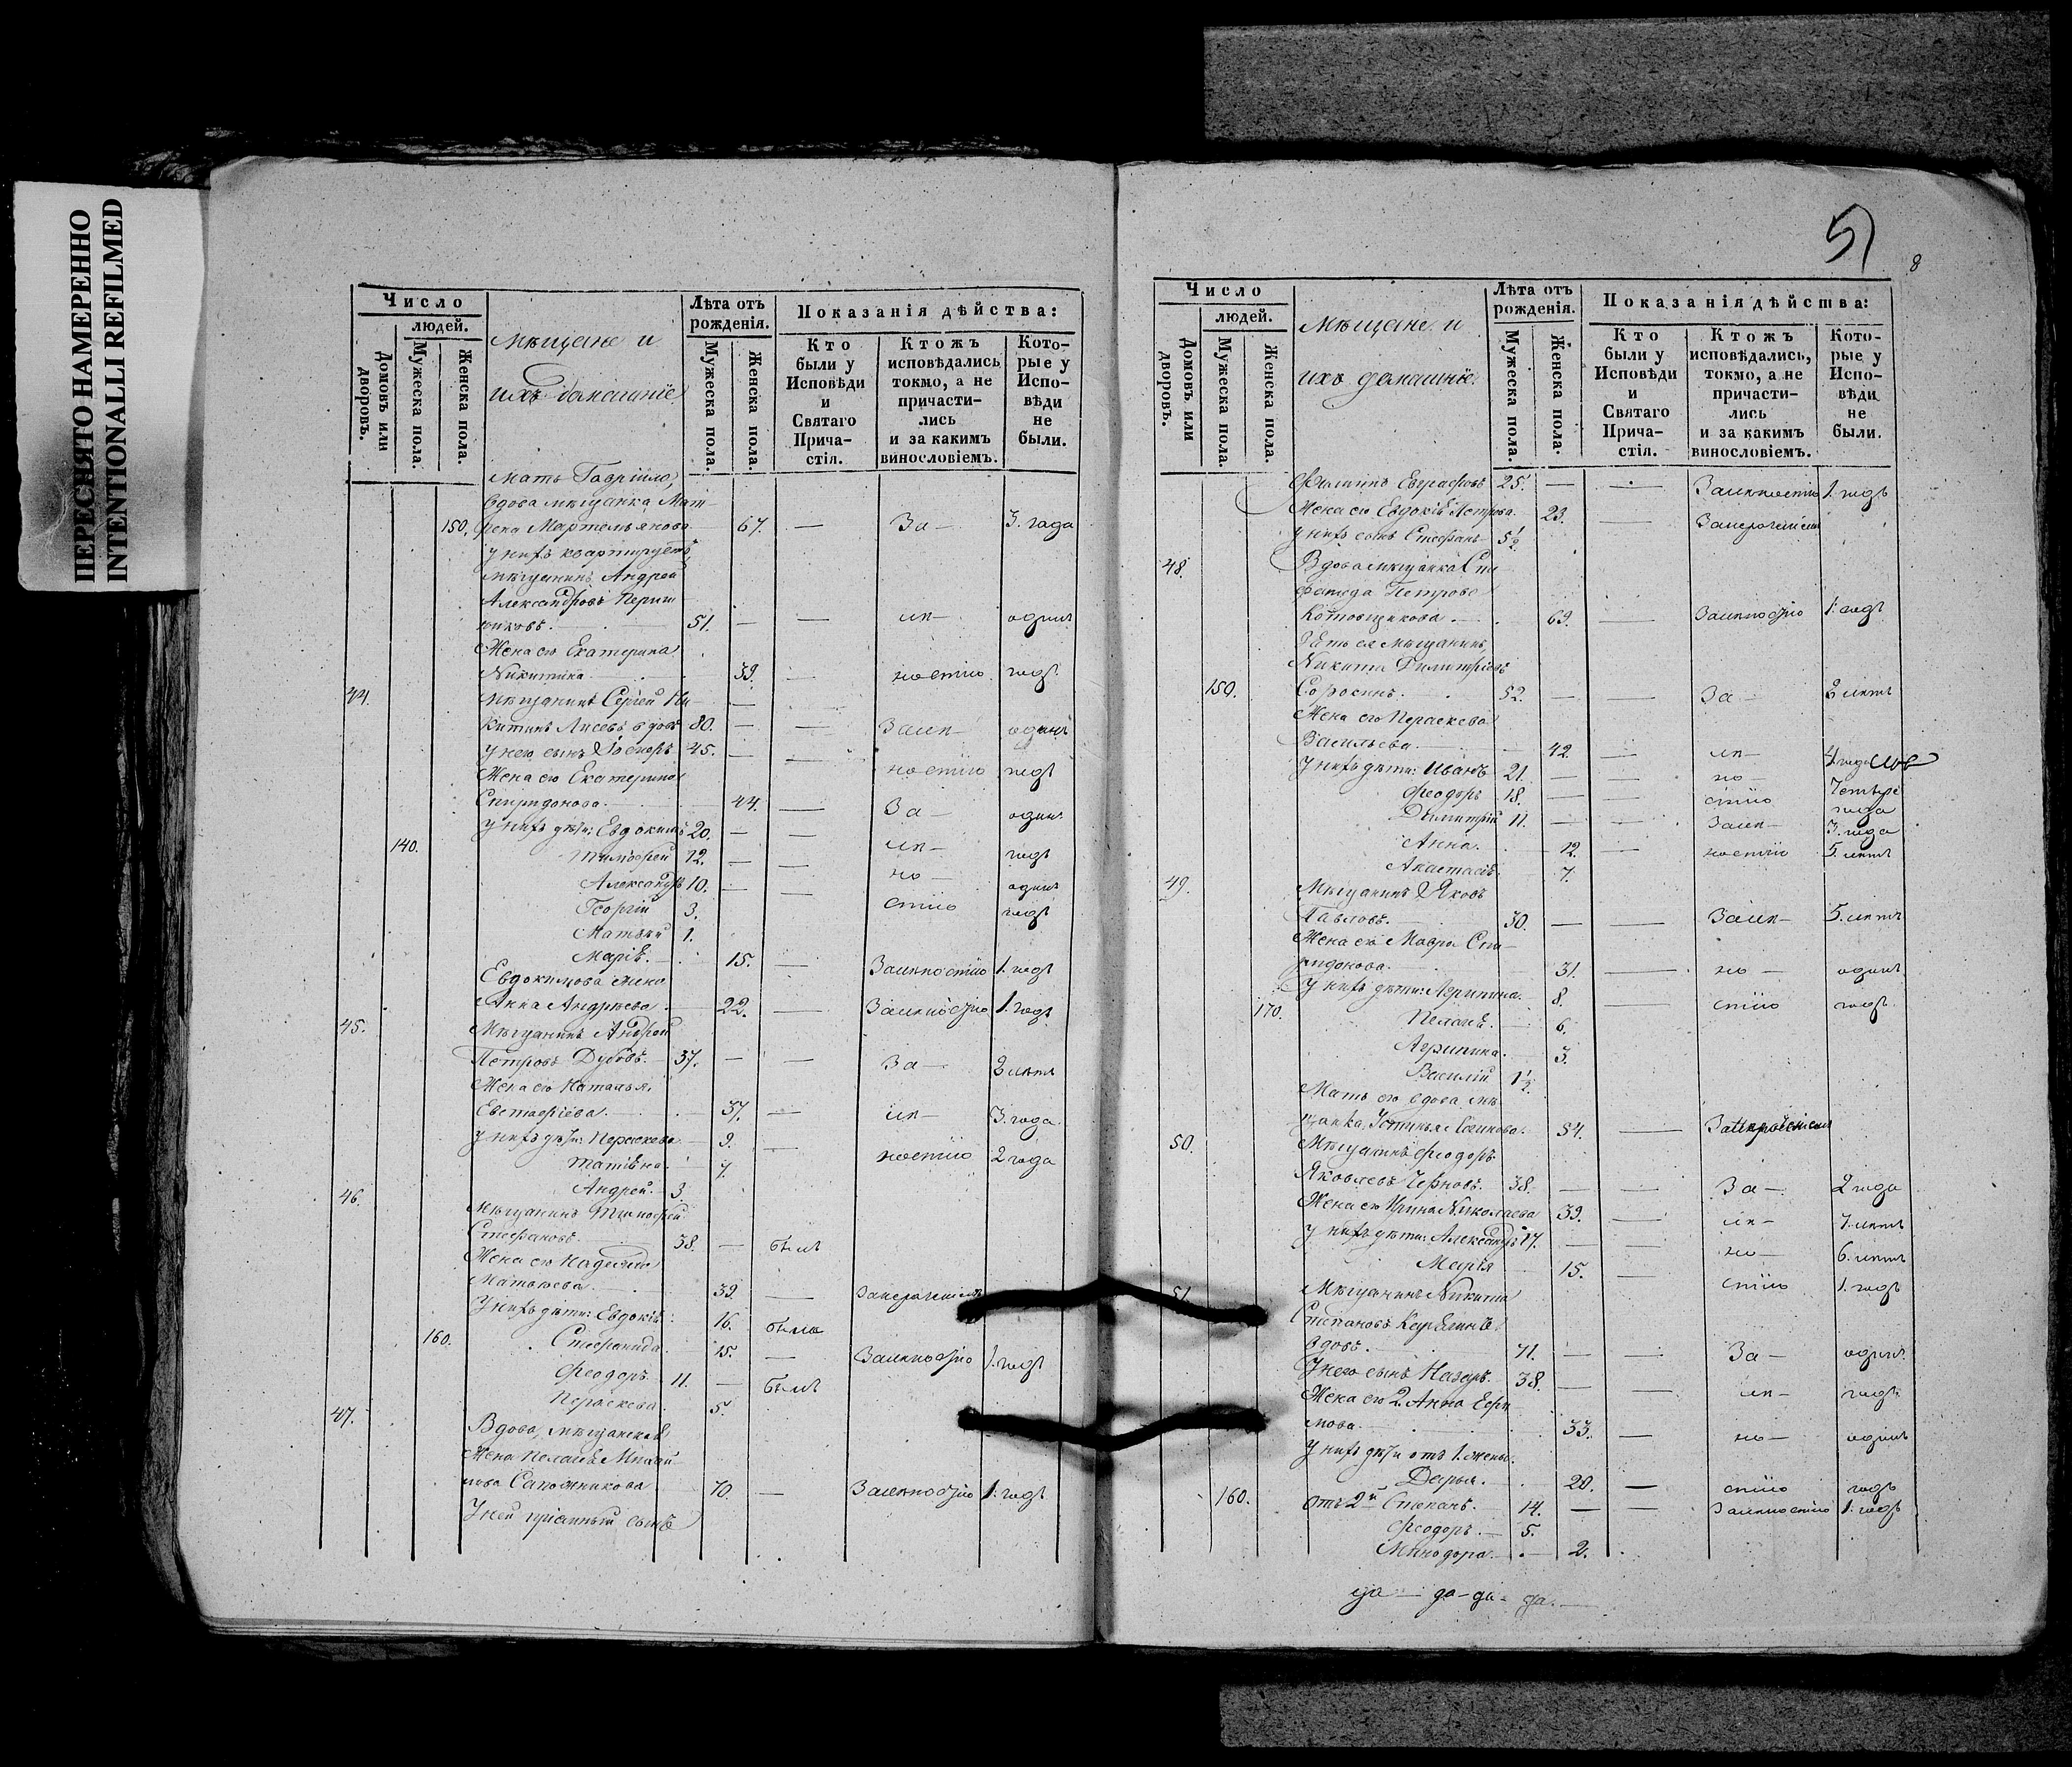 ПЕРЕСНЯТО НАМЕРЕННО
INTENTIONALLI REFILMED
Число
людей.
Домовъ или дворовъ.
Мужеска пола.
Женска пола.
Мѣщане и
ихъ домашніе.
Лѣта отъ рожденія.
Мужеска пола.
Женска пола.
Показанія дѣйства:
Кто были у Исповѣди и Святаго Прича-стія.
Ктожъ исповѣдались токмо, а не причасти-лись и за какимъ винословіемъ.
Кото-рые у Испо-вѣди не были.
Мать Гавріила,
вдова мѣщанка Мат-
150. рена Мартемьянова 67. — За- 3. года
у нихъ квартируетъ
мѣщанинъ Андрей
Александровъ
51. — — лѣ- одинъ
Жена его Екатерина
Никитина 39. — ностію годъ
44. Мѣщанинъ Сергей Ни-
китинъ вдовъ 80. — — Залѣ- одинъ
У него сынъ 45. — — ностію годъ
Жена его Екатерина
Спиридонова 44. — За- одинъ
У нихъ дѣти: Евдокимъ 20. — — лѣ- годъ
140. Тимофей 12. — — но- одинъ
Александръ 10. — — стію годъ
Георгій 3.
Матвѣй 1.
Марія 15. — Залѣностію 1. годъ
Евдокимова жена
Анна Андреева 22. — Залѣностію 1. годъ
45. Мѣщанинъ Андрей
Петровъ Дубовъ 37. — — За- 2 лѣтъ
Жена его Наталья
Евстафіева 37. — лѣ- 3. года
У нихъ дѣти: Параскева 9. — ностію 2 года
Татіана 7.
Андрей 3.
46. Мѣщанинъ Тимофей
Стефановъ 38. — былъ
Жена его Надежда
Матвѣева 39. —
У нихъ дѣти: Евдокія 16. была
160. Стефанида 15. — Залѣностію 1. годъ
Феодоръ 11. — былъ
Параскева 5.
47. Вдова, мѣщанская
Жена Пелагія Михай-
лова Сапожникова 70. — Залѣностію 1. годъ
У ней пріемный сынъ
51
8
Число
людей.
Домовъ или дворовъ.
Мужеска пола.
Женска пола.
Мѣщане и
ихъ домашніе.
Лѣта отъ рожденія.
Мужеска пола.
Женска пола.
Показанія дѣйства:
Кто были у Исповѣди и Святаго Прича-стія.
Ктожъ исповѣдались, токмо, а не причасти-лись и за какимъ винословіемъ.
Кото-рые у Испо-вѣди не были.
Филипъ Евграфовъ 25. — — Залѣностію 1. годъ
Жена его Евдокія Петрова 23. —
У нихъ сынъ Стефанъ 5½
48. Вдова мѣщанка
Петрова
69. — Залѣностію 1. годъ
Зять ея мѣщанинъ
Никита Димитріевъ
150. Сорокинъ 52. — — За- 2 лѣтъ
Жена его Параскева
Васильева 42. — лѣ- 4 года
У нихъ дѣти: Иванъ 21. — — но-
Феодоръ 18. — — стію года
Димитрій 11. — — Залѣ- 3. года
Анна 12. — ностію 5. лѣтъ
Анастасія 7.
49. Мѣщанинъ Яковъ
Павловъ 30. — — Залѣ- 5. лѣтъ
Жена его Мавра Спи-
ридонова 31. — но- одинъ
У нихъ дѣти: Агрипина 8. — стію годъ
170. Пелагія 6.
Агрипина 3.
Василій 1½
Мать его вдова мѣ-
щанка, Устинья 54. —
50. Мѣщанинъ Феодоръ
Яковлевъ Черновъ 38. — — За- 2 года
Жена его Николаева 39. — лѣ- 7. лѣтъ
У нихъ дѣти: Александръ 17. — — но- 6. лѣтъ
Марія 15. — стію 1. годъ
51. Мѣщанинъ Никита
Степановъ
вдовъ 71. — — За- одинъ
У него сынъ Назаръ 38. — — лѣ- годъ
Жена его 2. Анна Ефи-
мова 33. — но- одинъ
У нихъ дѣти отъ 1. жены
Дарья 20. — стію годъ
160. Отъ 2й Степанъ 14. — — Залѣностію 1. годъ
Феодоръ 5.
Минодора 2.